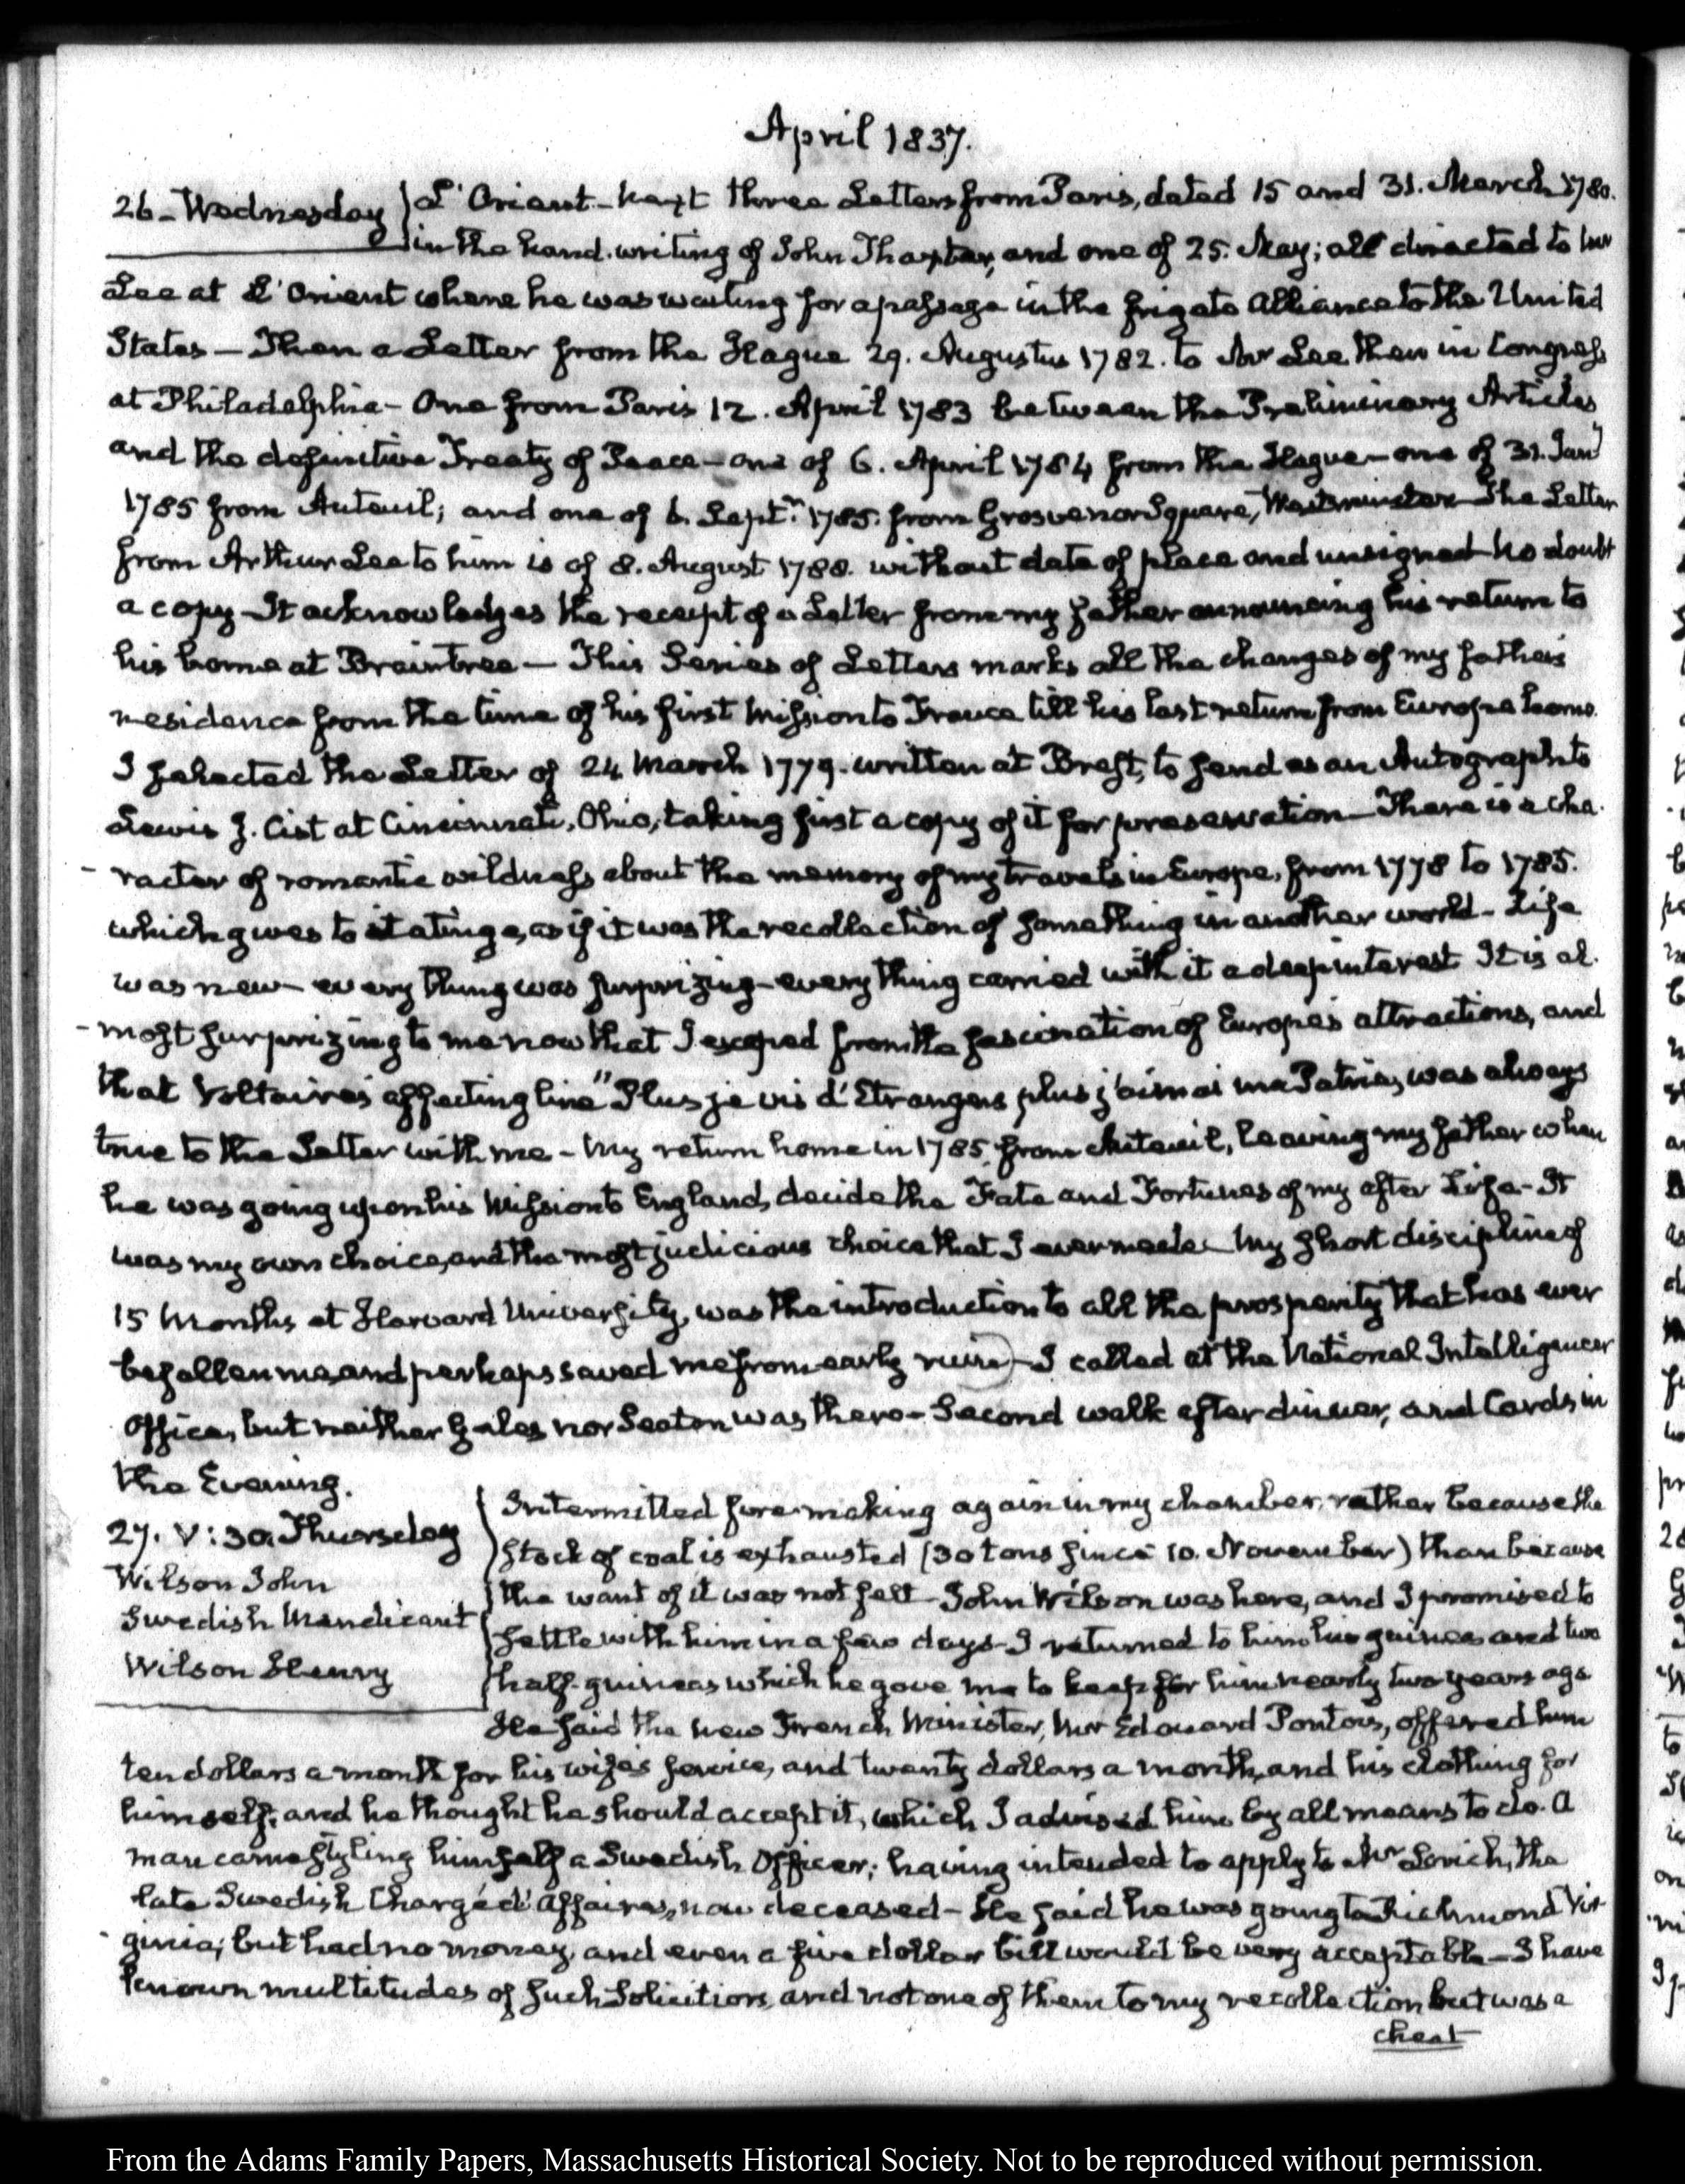 April 1837.
26 – Wednesday
L'Orient – next three Letters from Paris, dated 15 and 31. March 1780.
in the hand-writing of John Thaxter, and one of 25. May; all directed to Mr
Lee at L'Orient where he was waiting for a passage in the frigate Alliance to the United
States – Then a Letter from the Hague 29. Augustus 1782. to Mr Lee then in Congress
at Philadelphia – One from Paris 12. April 1783 between the Preliminary Articles
and the definitive Treaty of Peace – one of 6. April 1784 from the Hague – one of 31. Jany
1785 from Auteuil; and one of 6. Septr. 1785. from Grosvenor Square, Westminster – The Letter
from Arthur Lee to him is of 8. August 1788. without date of place and unsigned – no doubt
a copy – It acknowledges the receipt of a Letter from my father announcing his return to
his home at Braintree – This Series of Letters marks all the changes of my father's
residence from the time of his first Mission to France till his last return from Europe home.
I selected the Letter of 24 March 1779. written at Brest, to send as an Autograph to
Lewis J. Cist at Cincinnati, Ohio; taking first a copy of it for preservation – There is a cha-
racter of romantic wildness about the memory of my travels in Europe, from 1778 to 1785.
which gives to it a tinge, as if it was the recollection of something in another world – Life
was new – every thing was surprizing – every thing carried with it a deep interest It is al-
most surprizing to me now that I escaped from the fascination of Europe's attractions, and
that Voltaire's affecting line "Plus je vis d'Etrangers plus j'aimai ma Patrie, was always
true to the Letter with me – My return home in 1785, from Auteuil, leaving my father when
he was going upon his Mission to England, decide the Fate and Fortunes of my after Life – It
was my own choice, and the most judicious choice that I ever made – My short discipline of
15 Months at Harvard University, was the introduction to all the prosperity that has ever
befallen me, and perhaps saved me from early ruin) – I called at the National Intelligencer
Office, but neither Gales nor Seaton was there – Second walk after dinner, and Cards in
the Evening.
27. V:30. Thursday
Wilson John
Swedish Mendicant
Wilson Henry
Intermitted fire-making again in my chamber, rather because the
stock of coal is exhausted (30 tons since 10. November) than because
the want of it was not felt – John Wilson was here, and I promised to
settle with him in a few days – I returned to him his guineas and two
half-guineas which he gave me to keep for him nearly two years ago.
He said the new French Minister, Mr Edouard Pontois, offered him
ten dollars a month for his wife's service, and twenty dollars a month, and his clothing for
himself; and he thought he should accept it, which I advised him by all means to do. A
man came styling himself a Swedish Officer; having intended to apply to Mr Lorich, the
late Swedish Chargé d'Affaires, now deceased – He said he was going to Richmond Vir-
ginia; but had no money, and even a five dollar bill would be very acceptable – I have
known multitudes of such Solicitors, and not one of them to my recollection but was a
cheat
From the Adams Family Papers, Massachusetts Historical Society. Not to be reproduced without permission.